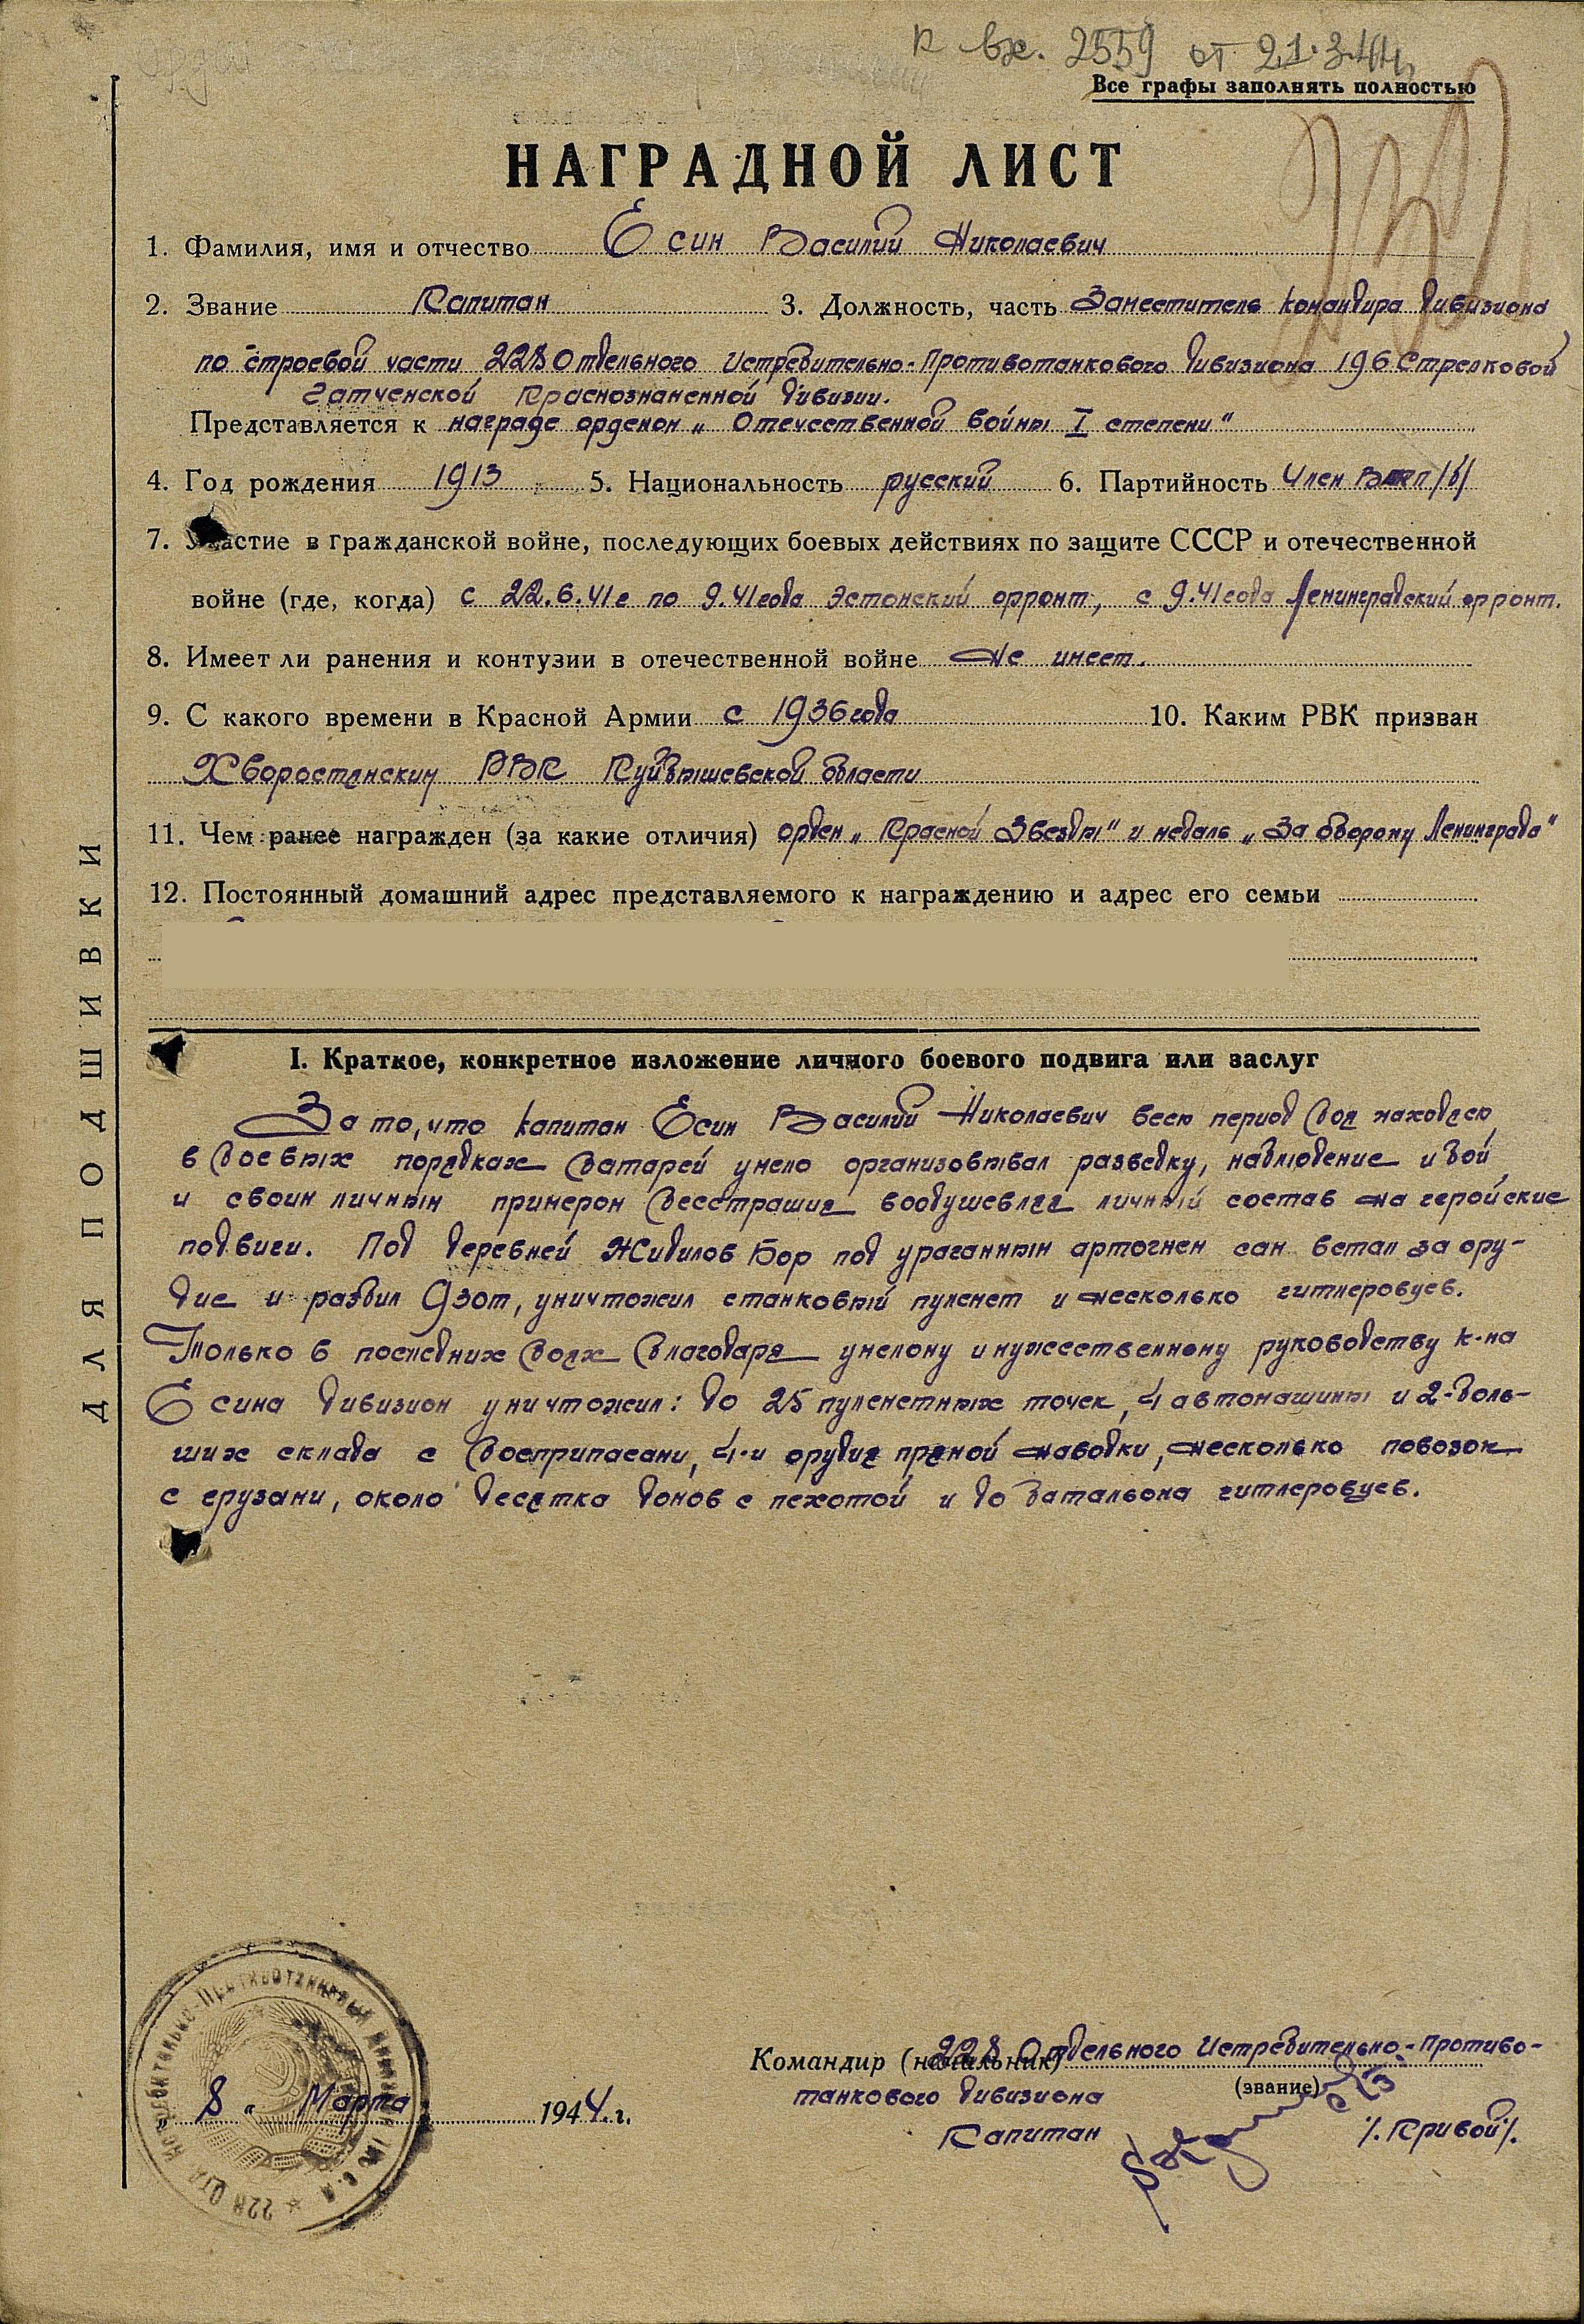 к вх. 2559 от 21.3.44г.
Все графы заполнять полностью
НАГРАДНОЙ ЛИСТ
1. Фамилия, имя и отчество Есин Василий Николаевич
2. Звание Капитан 3. Должность, часть Заместитель командира дивизиона
по строевой части 228 Отдельного Истребительно-Противотанкового дивизиона 196 Стрелковой
Гатченской Краснознаменной дивизии.
Представляется к награде орденом „Отечественной войны I степени"
4. Год рождения 1913 5. Национальность русский 6. Партийность Член ВКП/б/
7. Участие в гражданской войне, последующих боевых действиях по защите СССР и отечественной
войне (где, когда) с 22.6.41г по 9.41года Эстонский фрронт, с 9.41года Ленинградский фрронт.
8. Имеет ли ранения и контузии в отечественной войне Не имеет.
9. С какого времени в Красной Армии с 1936 года 10. Каким РВК призван
Хворостянским РВК Куйбышевской области
11. Чем ранее награжден (за какие отличия) орден „Красной Звезды" и медаль „За оборону Ленинграда"
12. Постоянный домашний адрес представляемого к награждению и адрес его семьи
ДЛЯ ПОДШИВКИ
I. Краткое, конкретное изложение личного боевого подвига или заслуг
За то, что капитан Есин Василий Николаевич весь период боя находясь
в боевых порядках батарей умело организовывал разведку, наблюдение и бой
и своим личным примером бесстрашия воодушевляя личный состав на геройские
подвиги. Под деревней Жидилов Бор под ураганным артогнем сам встал за ору-
дие и разбил Дзот, уничтожил станковый пулемет и несколько гитлеровцев.
Только в последних боях благодаря умелому и мужественному руководству к-на
Есина дивизион уничтожил: до 25 пулеметных точек, 4 автомашины и 2-боль-
ших склада с боеприпасами, 4-и орудия прямой наводки, несколько повозок
с грузами, около десятка домов с пехотой и до батальона гитлеровцев.
Командир (начальник) 228 Отдельного Истребительно-Противо-
(звание)
танкового дивизиона
„8" Марта 1944.г.
Капитан /.Кривой/.